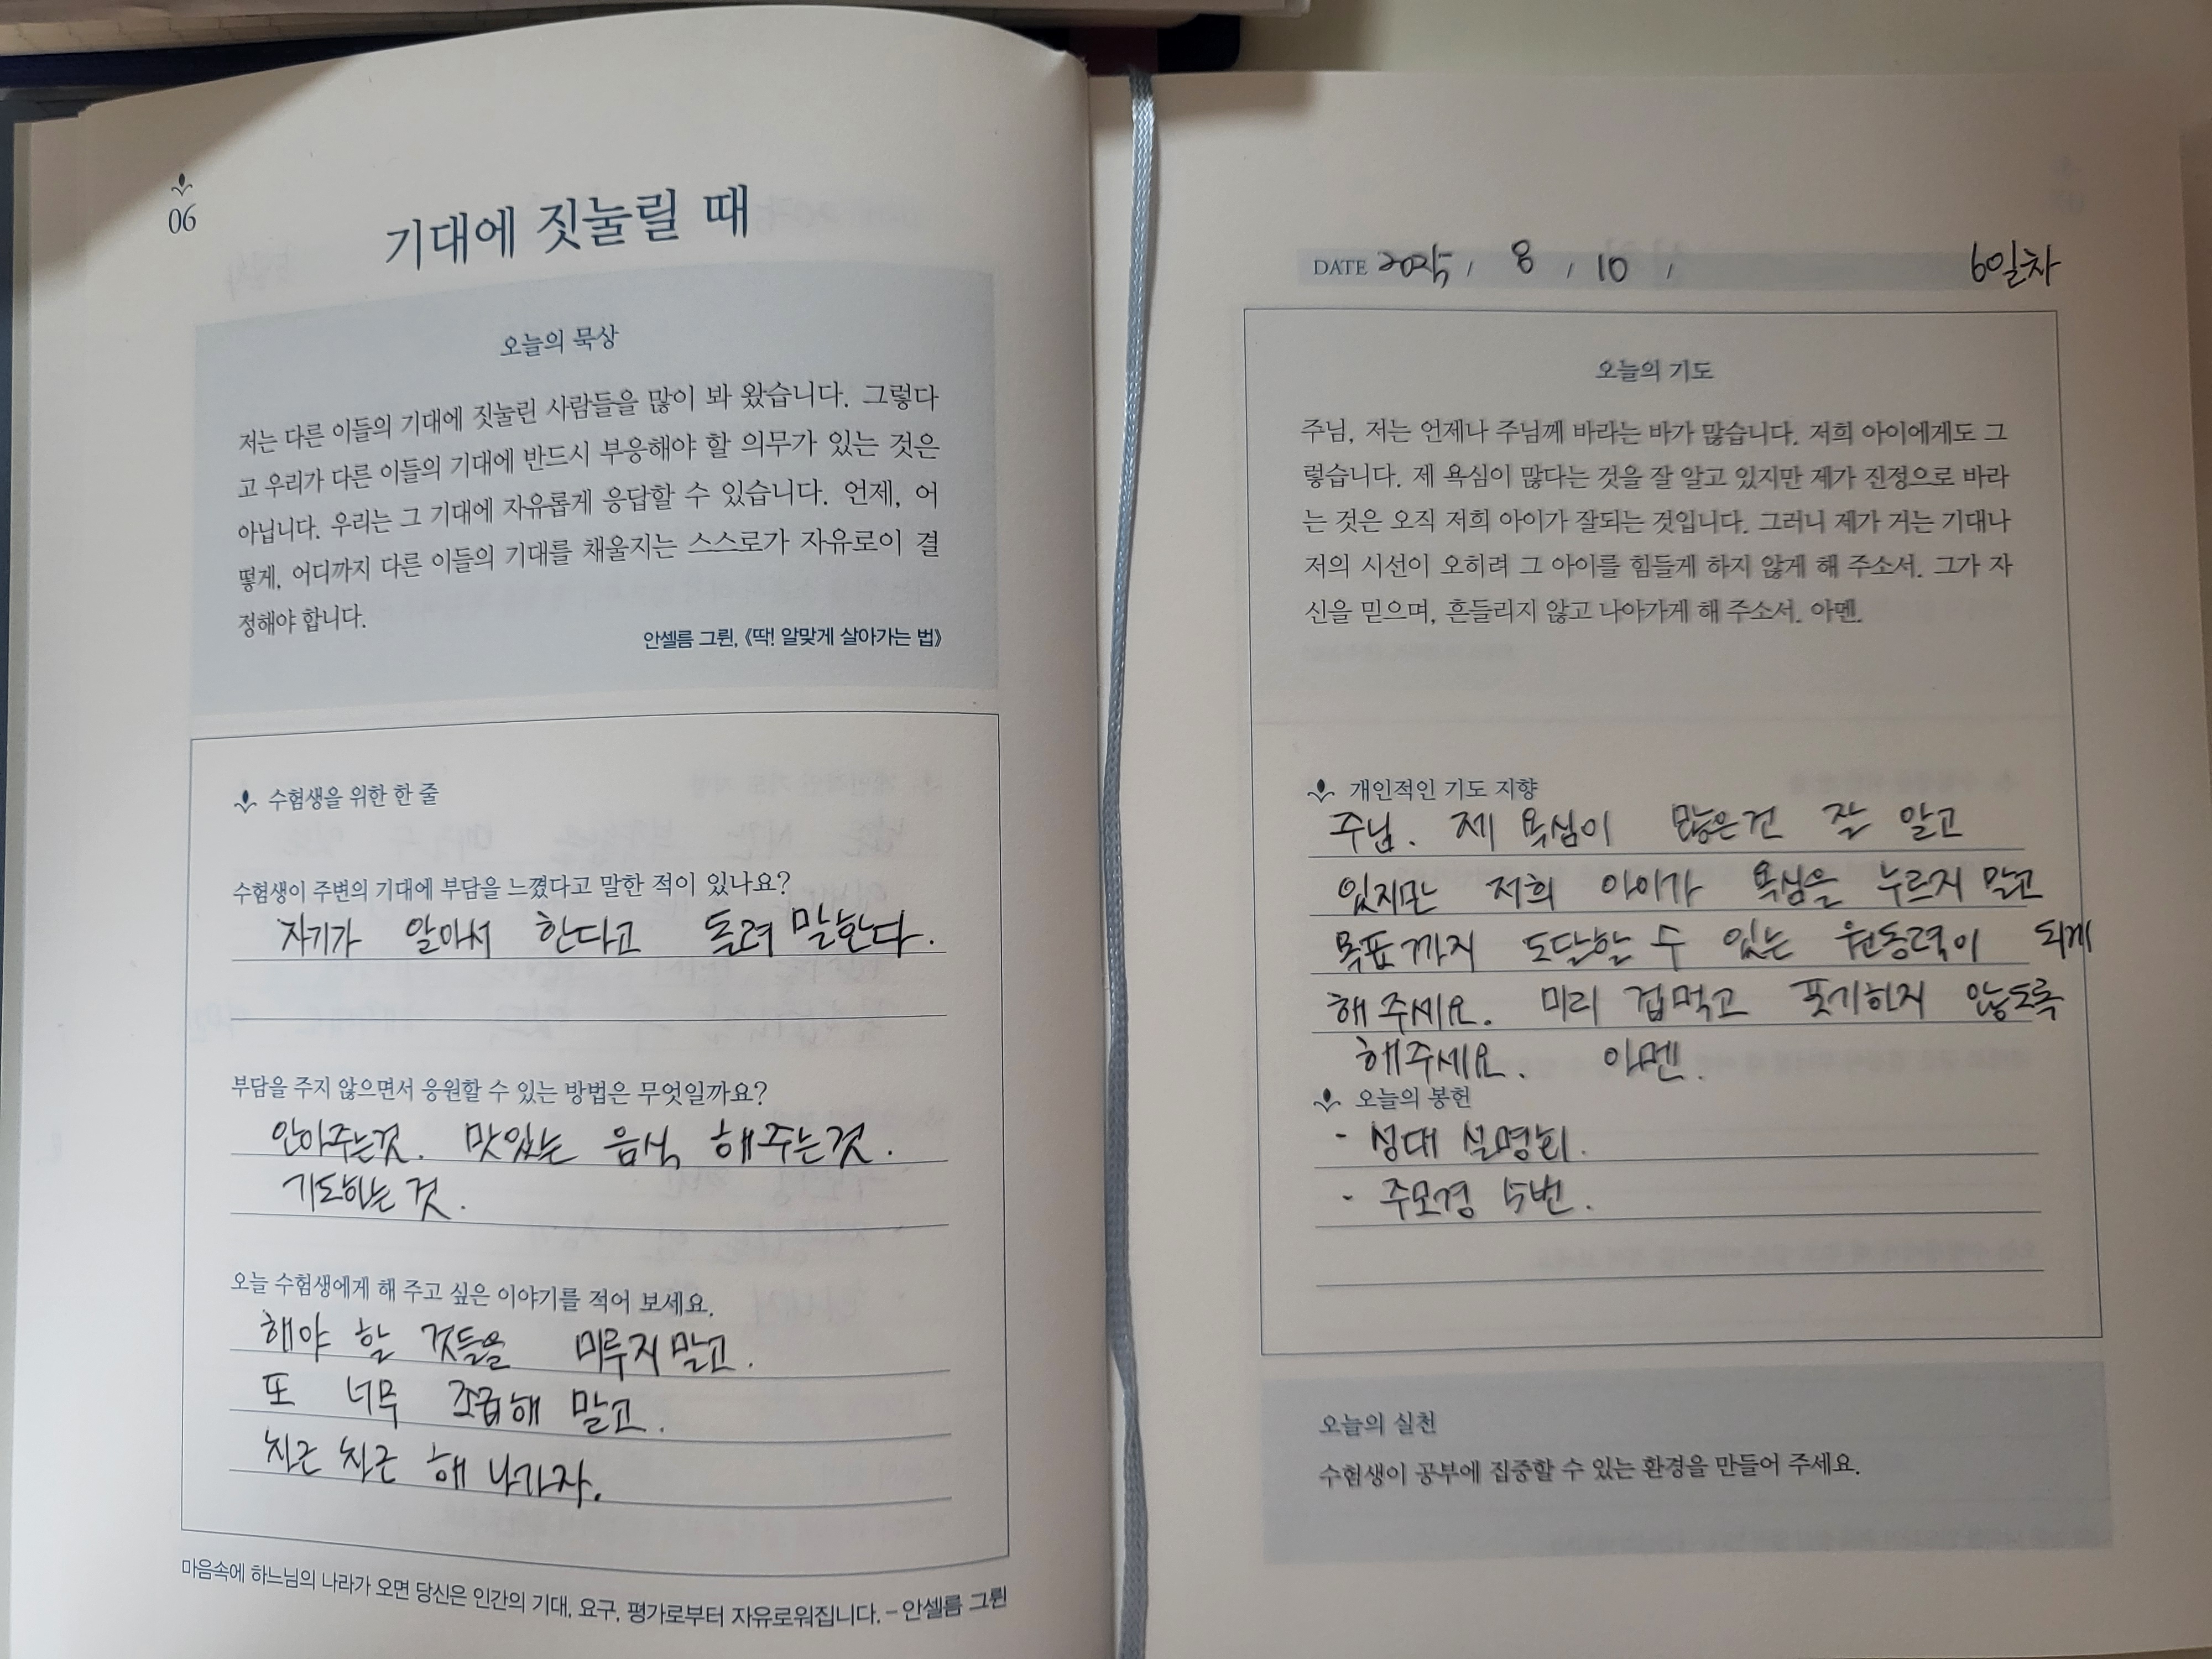 06
기대에 짓눌릴 때
오늘의 묵상
저는 다른 이들의 기대에 짓눌린 사람들을 많이 봐 왔습니다. 그렇다
고 우리가 다른 이들의 기대에 반드시 부응해야 할 의무가 있는 것은
아닙니다. 우리는 그 기대에 자유롭게 응답할 수 있습니다. 언제, 어
떻게, 어디까지 다른 이들의 기대를 채울지는 스스로가 자유로이 결
정해야 합니다.
안셀름 그륀, 《딱! 알맞게 살아가는 법》
수험생을 위한 한 줄
수험생이 주변의 기대에 부담을 느꼈다고 말한 적이 있나요?
자기가 알아서 한다고 돌려 말한다.
부담을 주지 않으면서 응원할 수 있는 방법은 무엇일까요?
안아주는것. 맛있는 음식 해주는것.
기도하는 것.
오늘 수험생에게 해 주고 싶은 이야기를 적어 보세요.
해야 할 것들을 미루지 말고.
또 너무 조급해 말고.
차근 차근 해 나가자.
마음속에 하느님의 나라가 오면 당신은 인간의 기대, 요구, 평가로부터 자유로워집니다. – 안셀름 그륀
DATE 2025 / 8 / 10 / 6일차
오늘의 기도
주님, 저는 언제나 주님께 바라는 바가 많습니다. 저희 아이에게도 그
렇습니다. 제 욕심이 많다는 것을 잘 알고 있지만 제가 진정으로 바라
는 것은 오직 저희 아이가 잘되는 것입니다. 그러니 제가 거는 기대나
저의 시선이 오히려 그 아이를 힘들게 하지 않게 해 주소서. 그가 자
신을 믿으며, 흔들리지 않고 나아가게 해 주소서. 아멘.
개인적인 기도 지향
주님. 제 욕심이 많은건 잘 알고
있지만 저희 아이가 욕심을 누르지 말고
목표까지 도달할 수 있는 원동력이 되게
해 주세요. 미리 겁먹고 포기하지 않도록
해주세요. 아멘.
오늘의 봉헌
- 성대 설명회.
- 주모경 5번.
오늘의 실천
수험생이 공부에 집중할 수 있는 환경을 만들어 주세요.